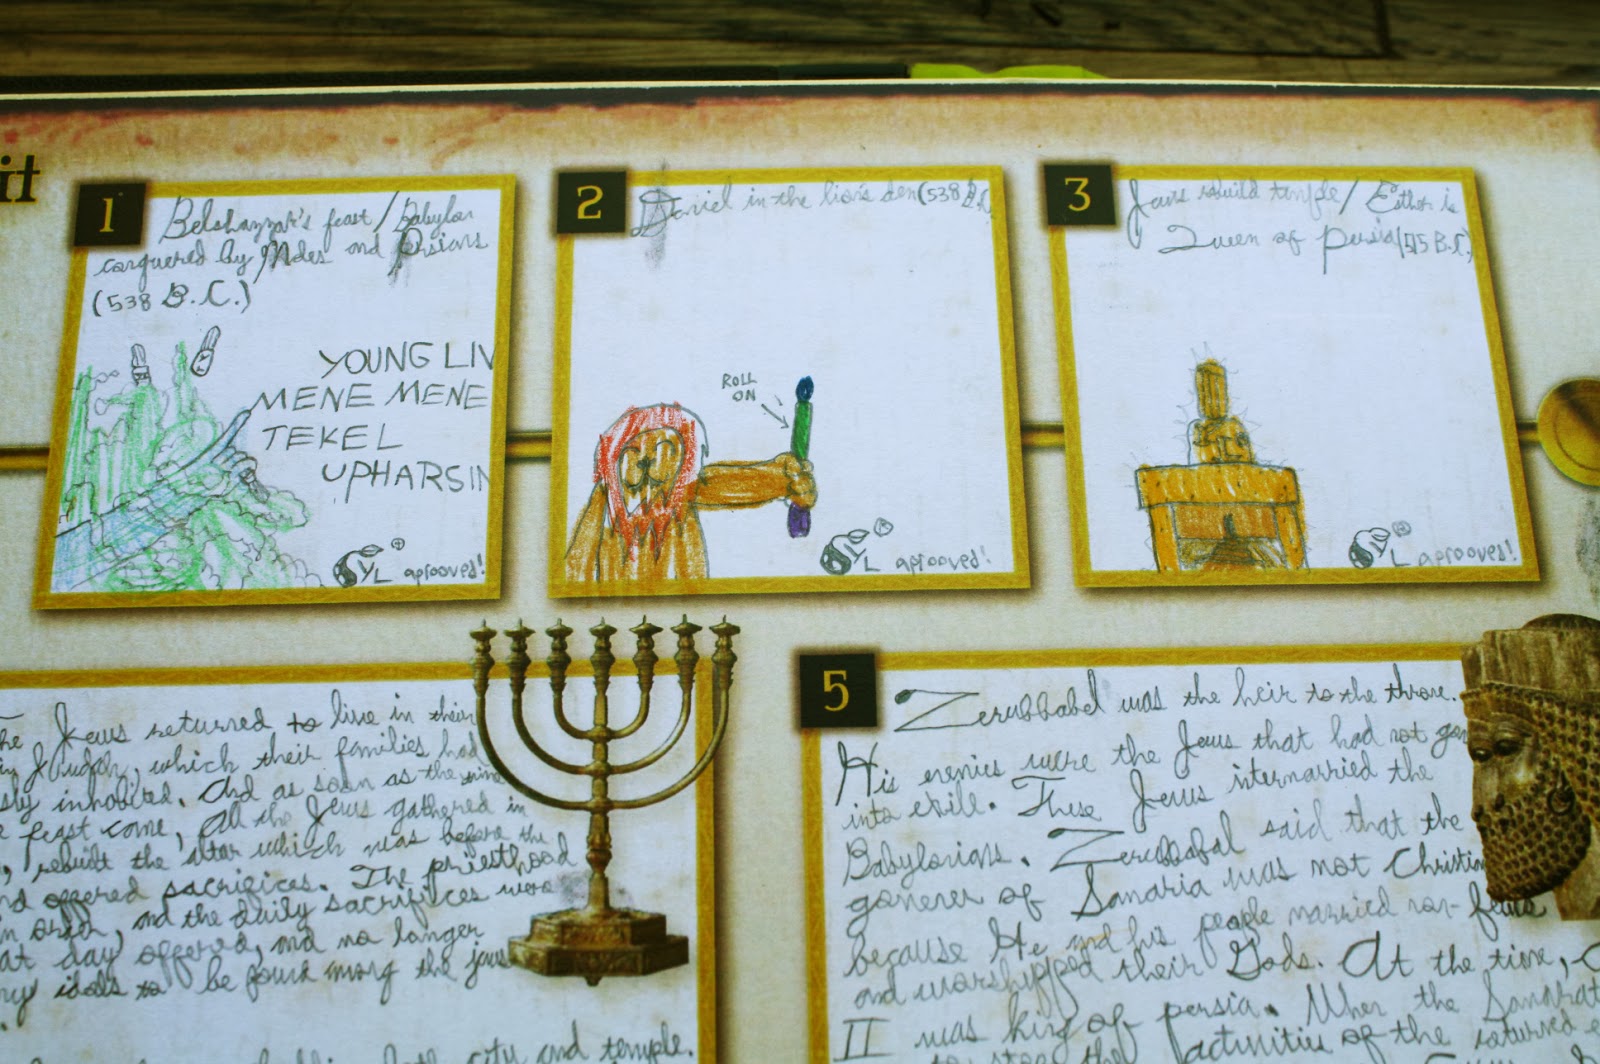 it
1
Belshazzar's feast / Babylon
conquered by Mdes and Persians
(538 B.C.)
YOUNG LIV
MENE MENE
TEKEL
UPHARSIN
YL aprooved!
2
Daniel in the lion's den (538 B.C.
ROLL
ON
YL aprooved!
3
Jews rebuild temple / Esther is
Queen of Persia (515 B.C.)
YL aprooved!
he Jews returned to live in their
Judah, which their families had
sly inhabited. And as soon as the
feast come, all the Jews gathered in
, rebuilt the altar which was before the
nd offered sacrifices. The priesthood
and the daily sacrifices were
at day offered, and no longer
ny idols to be found among the jews
.
both city and temple.
5
Zerubbabel was the heir to the throne.
His enemies were the Jews that had not gon
into exile. These Jews intermarried the
Babylonians. Zerubbabal said that the
of Samaria was not Christian
because He and his people married
and worshipped their Gods. At the time,
II was king of persia. When the
to stop the activities of the returned e